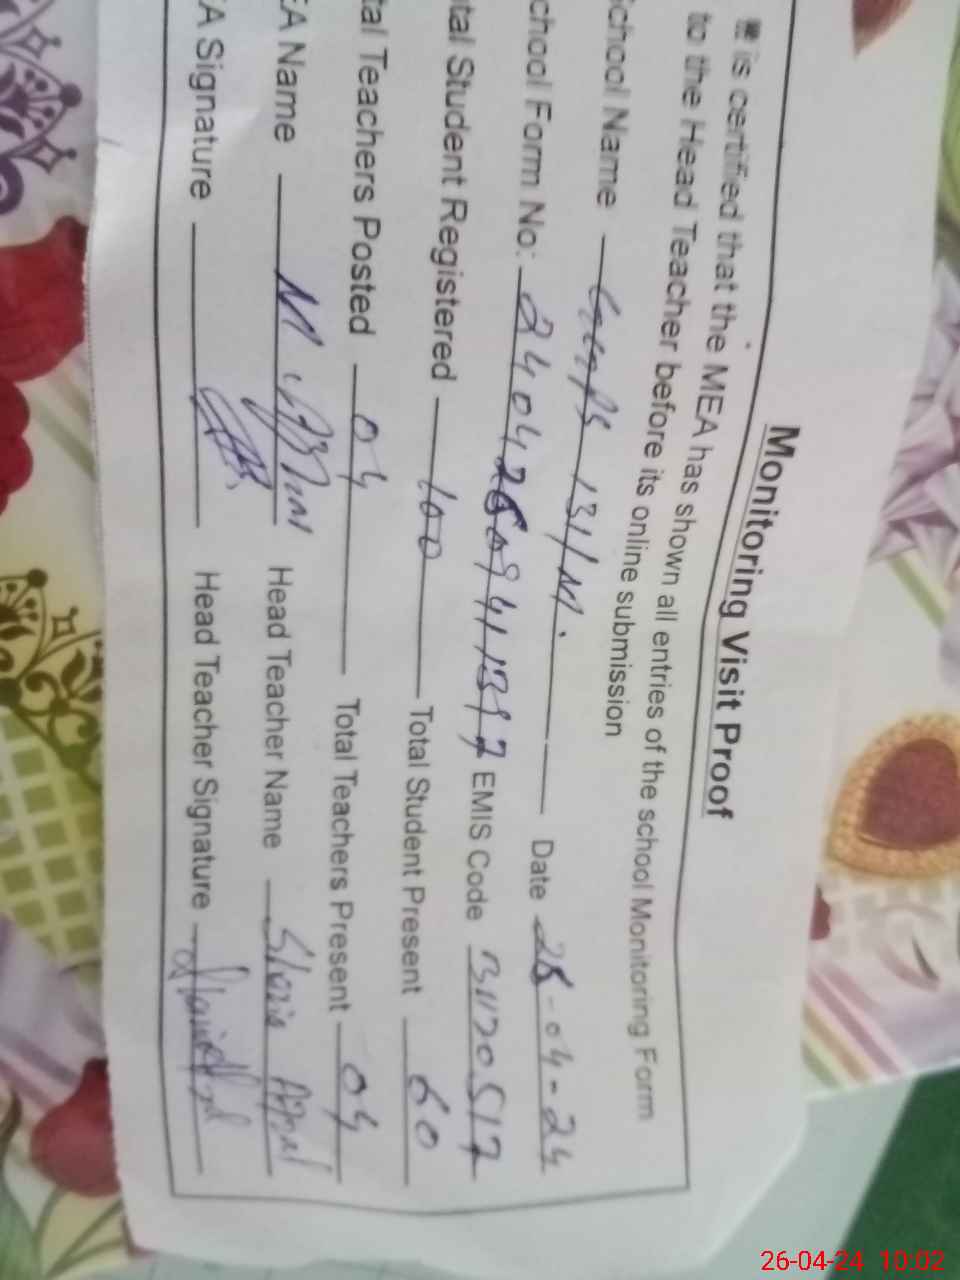 Monitoring Visit Proof
is certified that the MEA has shown all entries of the school Monitoring Form
to the Head Teacher before its online submission
School Name 131/M. Date 26-04-24
chool Form No: 2404260941397 EMIS Code 31120517
tal Student Registered 100 Total Student Present 60
tal Teachers Posted 04 Total Teachers Present 04
EA Name M Head Teacher Name Shazia Afzal
A Signature Head Teacher Signature
26-04-24 10:02